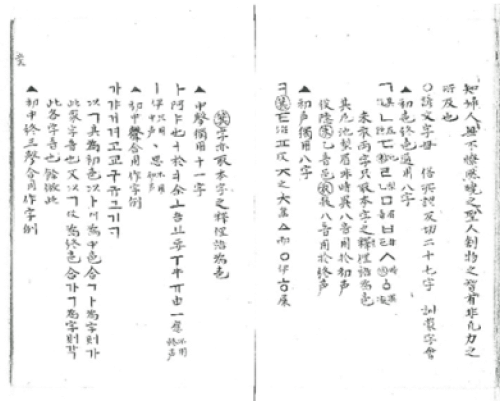 知婦人無不瞭然曉之聖人創物之智有非凡力之
所及也
〇諺文字母 俗所謂反切二十七字 訓蒙字會
▲初声終声通用八字
ㄱ其役ㄴ尼隱ㄷ池末ㄹ梨乙ㅁ眉音ㅂ非邑ㅅ時衣ㆁ異凝
末衣兩字只取本字之釋俚語爲声
其尼池梨眉非時異八音用於初声
役隱末乙音邑衣凝八音用於終声
▲初声獨用八字
ㅋ箕ㅌ治ㅍ皮ㅈ之ㅊ齒ㅿ而ㅇ伊ㅎ屎
箕字亦取本字之釋俚語爲声
▲中聲獨用十一字
ㅏ阿ㅑ也ㅓ於ㅕ余ㅗ吾ㅛ要ㅜ牛ㅠ由ㅡ應不用終声
ㅣ伊只用中声ㆍ思不用初声
▲初中聲合用作字例
가갸거겨고교구규그기ᄀᆞ
以ㄱ其爲初声以ㅏ阿爲中声合ㄱㅏ爲字則가
此家字音也又以ㄱ役爲終声合가ㄱ爲字則각
此各字音也餘倣此
▲初中終三聲合用作字例